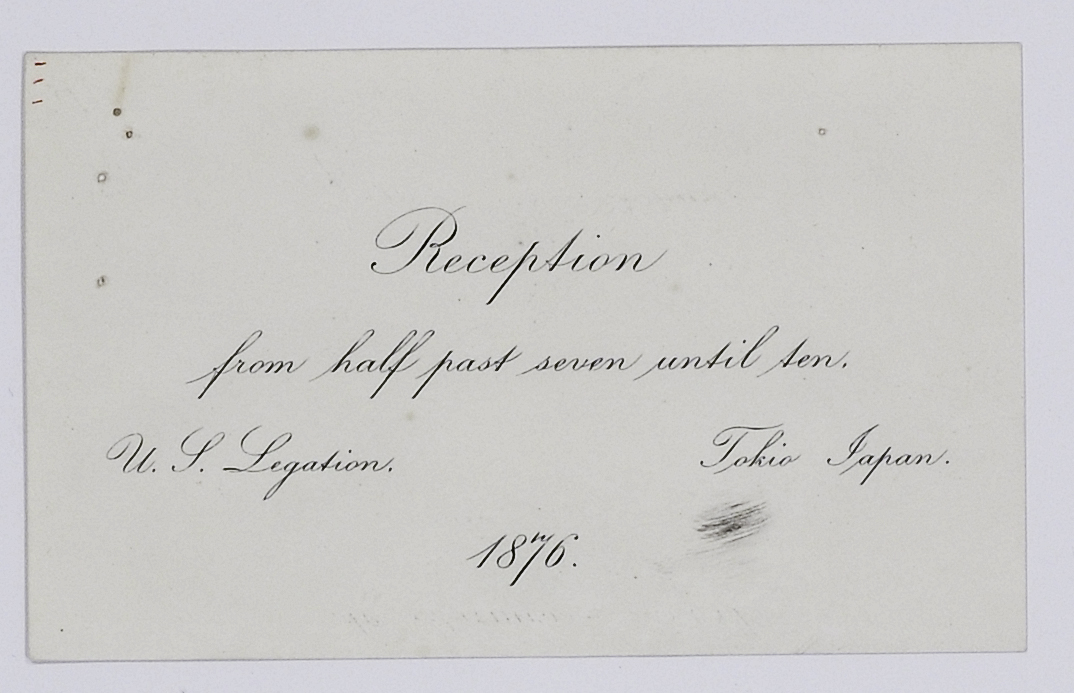 Reception
from half past seven until ten.
U. S. Legation. Tokio Japan.
1876.